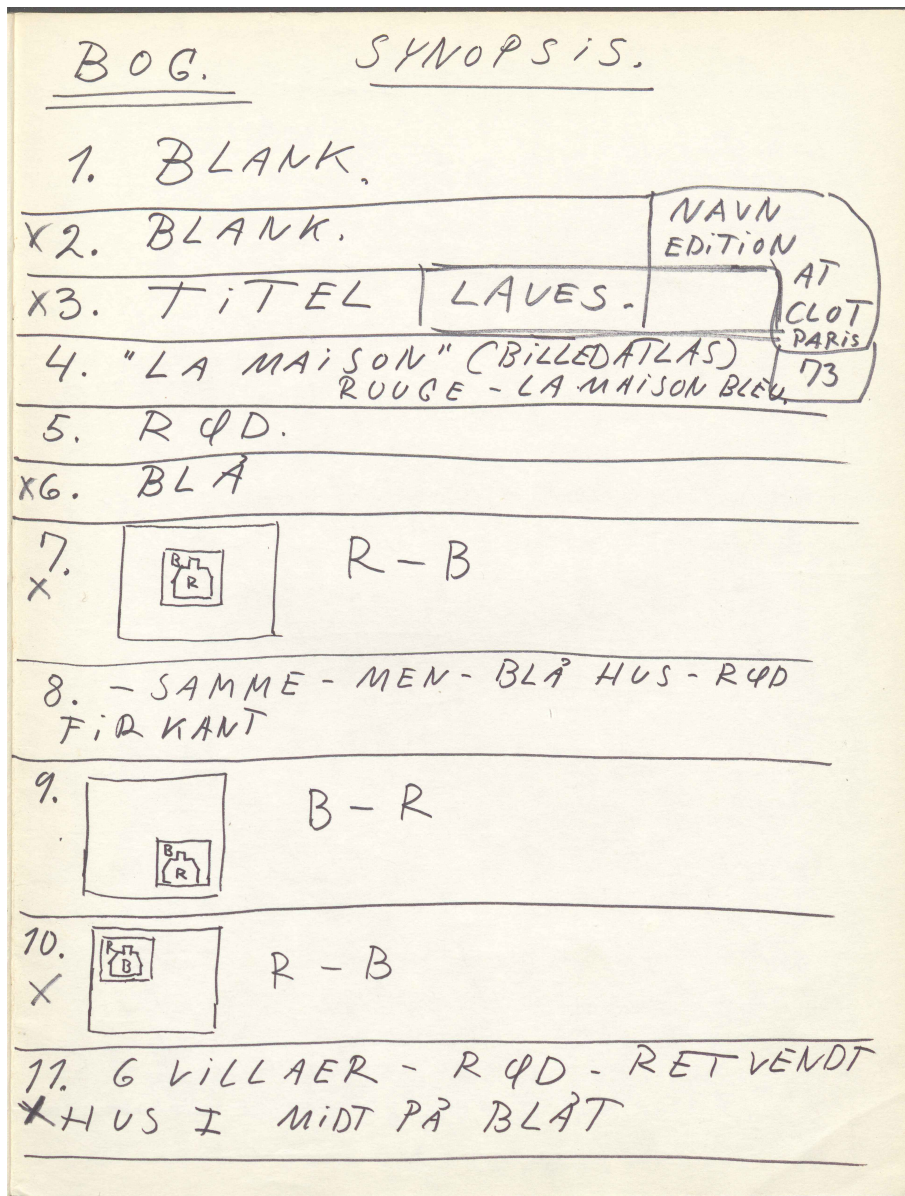 BOG. SYNOPSIS.
1. BLANK.
X2. BLANK.
NAVN
EDITION
AT
CLOT
PARIS
73
X3. TITEL LAVES.
4. "LA MAISON" (BILLEDATLAS)
ROUGE - LA MAISON BLEU.
5. RØD.
X6. BLÅ
7. R - B
X
B
R
8. - SAMME - MEN - BLÅ HUS - RØD
FIRKANT
9. B - R
B
R
10. R - B
X
R
B
11. 6 VILLAER - RØD - RETVENDT
X HUS I MIDT PÅ BLÅT